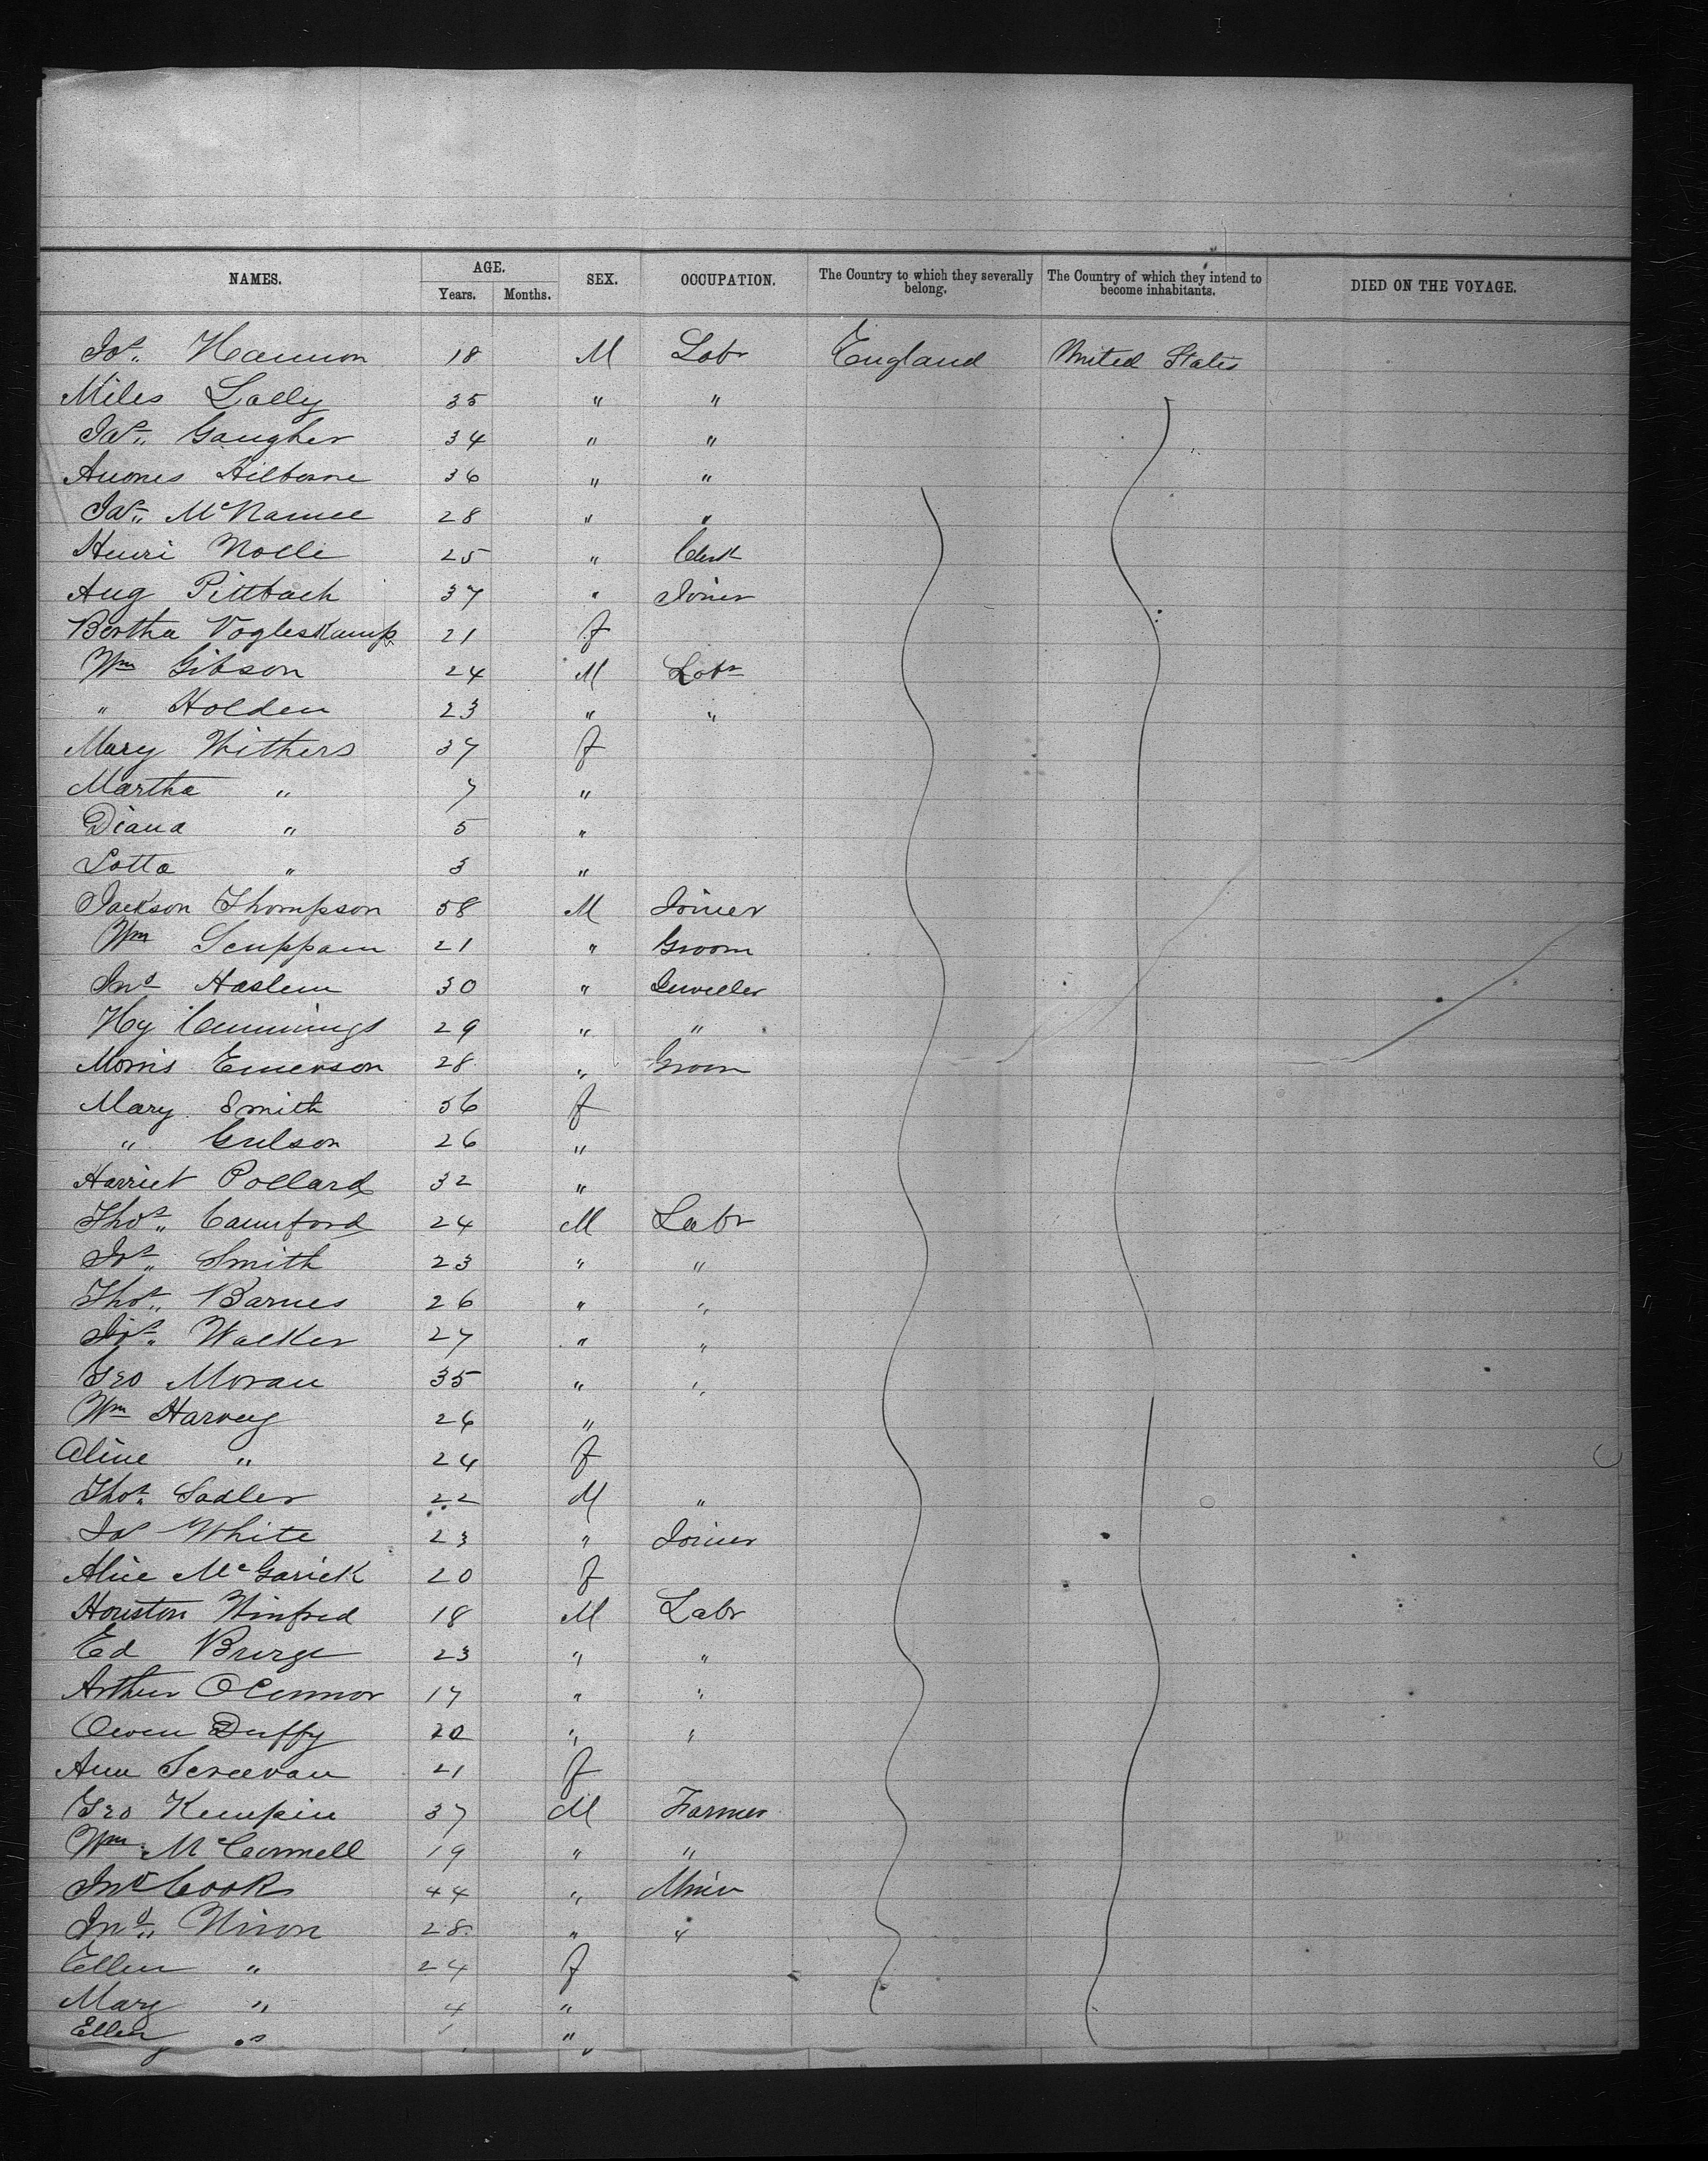 NAMES. AGE. SEX. OCCUPATION. The Country to which they severally belong. The Country of which they intend to become inhabitants. DIED ON THE VOYAGE.
Years. Months.
Jos. Hannon 18 M Labr England United States
Miles Lally 35 " "
Jas. Gaugher 34 " "
Hilborne 36 " "
Jas. McNamee 28 " "
Henri Nolle 25 " Clerk
Aug Pittbach 37 " Joiner
Bertha Vogleskamp 21 f
Wm Gibson 24 M Labr
" Holden 23 " "
Mary Withers 37 f
Martha " 7 "
Diana " 5 "
Lotta " 3 "
Jackson Thompson 58 M Joiner
Wm Scuppam 21 " Groom
Jno Haslem 30 " Jeweller
Hy Cummings 29 " "
Morris Emerson 28 " Groom
Mary Smith 56 f
" Gulson 26 "
Harriet Pollard 32 "
Thos. Camford 24 M Labr
Jos. Smith 23 " "
Thos. Barnes 26 " "
Jos. Walker 27 " "
Geo Moran 35 " "
Wm Harvey 26 "
Aline " 24 f
Thos. Sadler 22 M "
Jas White 23 " Joiner
Alice McGarick 20 f
Houston Winfred 18 M Labr
Ed Burge 23 " "
Arthur OConnor 17 " "
Owen Duffy 20 " "
Ann Screevan 21 f
Geo Kempin 37 M Farmer
Wm McConnell 19 " "
Jno Cook 44 " Miner
Jno. Nixon 28 " "
Ellen " 24 f
Mary " 4 "
Ellen " "